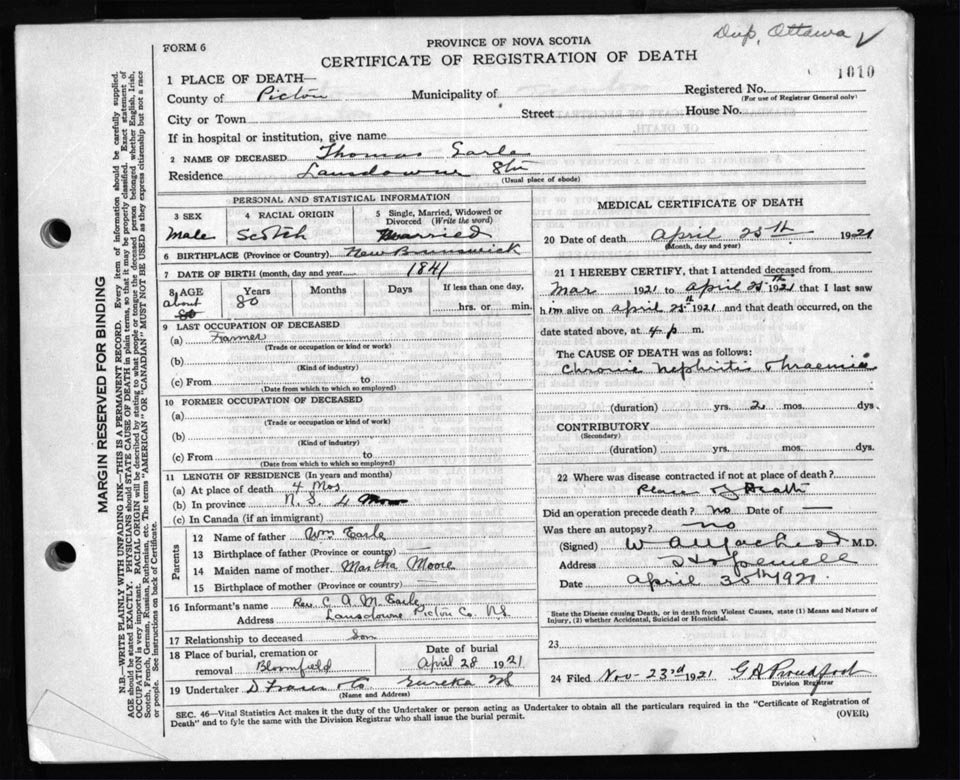 Dup, Ottawa ✓
FORM 6
PROVINCE OF NOVA SCOTIA
CERTIFICATE OF REGISTRATION OF DEATH
1010
1 PLACE OF DEATH—
County of Pictou Municipality of Registered No.
(For use of Registrar General only)
City or Town Street House No.
If in hospital or institution, give name
2 NAME OF DECEASED Thomas Earle
Residence Lansdowne Stn
(Usual place of abode)
PERSONAL AND STATISTICAL INFORMATION
3 SEX 4 RACIAL ORIGIN 5 Single, Married, Widowed or Divorced (Write the word)
Male Scotch Married
6 BIRTHPLACE (Province or Country) New Brunswick
7 DATE OF BIRTH (month, day and year) 1841
8 AGE Years Months Days If less than one day,
about 80 80 hrs. or min.
9 LAST OCCUPATION OF DECEASED
(a) Farmer
(Trade or occupation or kind or work)
(b)
(Kind of industry)
(c) From to
(Date from which to which so employed)
10 FORMER OCCUPATION OF DECEASED
(a)
(Trade or occupation or kind of work)
(b)
(Kind of industry)
(c) From to
(Date from which to which so employed)
11 LENGTH OF RESIDENCE (In years and months)
(a) At place of death 4 Mos
(b) In province N. S. 4 Mos
(c) In Canada (if an immigrant)
Parents
12 Name of father Wm Earle
13 Birthplace of father (Province or country)
14 Maiden name of mother Martha Moore
15 Birthplace of mother (Province or country)
16 Informant's name Rev. C. A. M. Earle
Address Lansdowne Pictou Co. N.S
17 Relationship to deceased Son
18 Place of burial, cremation or removal Bloomfield
Date of burial April 28 1921
19 Undertaker D Fraser Co Eureka NS
(Name and Address)
MEDICAL CERTIFICATE OF DEATH
20 Date of death April 25th 1921
(Month, day and year)
21 I HEREBY CERTIFY, that I attended deceased from
Mar 1921 to April 25th 1921 that I last saw
him alive on April 25th 1921 and that death occurred, on the
date stated above, at 4 p m.
The CAUSE OF DEATH was as follows:
Chronic Nephritis
(duration) yrs. 2 mos. dys.
CONTRIBUTORY
(Secondary)
(duration) yrs. mos. dys.
22 Where was disease contracted if not at place of death?
Place of Death
Did an operation precede death? No Date of —
Was there an autopsy? no
(Signed) M.D.
Address Hopewell
Date April 30th 1921
State the Disease causing Death, or in death from Violent Causes, state (1) Means and Nature of Injury, (2) whether Accidental, Suicidal or Homicidal.
23
24 Filed Nov 23rd 1921 G A Proudfoot
Division Registrar
SEC. 46—Vital Statistics Act makes it the duty of the Undertaker or person acting as Undertaker to obtain all the particulars required in the "Certificate of Registration of
Death" and to fyle the same with the Division Registrar who shall issue the burial permit. (OVER)
MARGIN RESERVED FOR BINDING
N.B.—WRITE PLAINLY WITH UNFADING INK—THIS IS A PERMANENT RECORD. Every item of information should be carefully supplied.
AGE should be stated EXACTLY. PHYSICIANS should STATE CAUSE OF DEATH in plain terms, so that it may be properly classified. Exact statement of
OCCUPATION is very important. RACIAL ORIGIN will be described by stating to what people or tongue the deceased person belonged whether English, Irish,
Scotch, French, German, Russian, Ruthenian, etc. The terms "AMERICAN" OR "CANADIAN" MUST NOT BE USED as they express citizenship but not a race
or people. See instructions on back of Certificate.